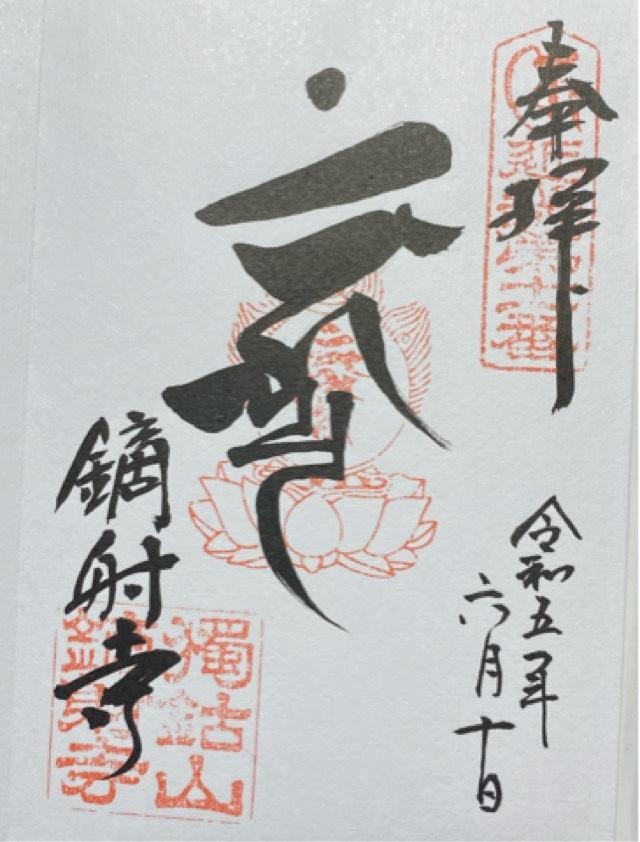 奉拝
令和五年
六月十日
鏑射寺
獨鈷山
鏑射寺